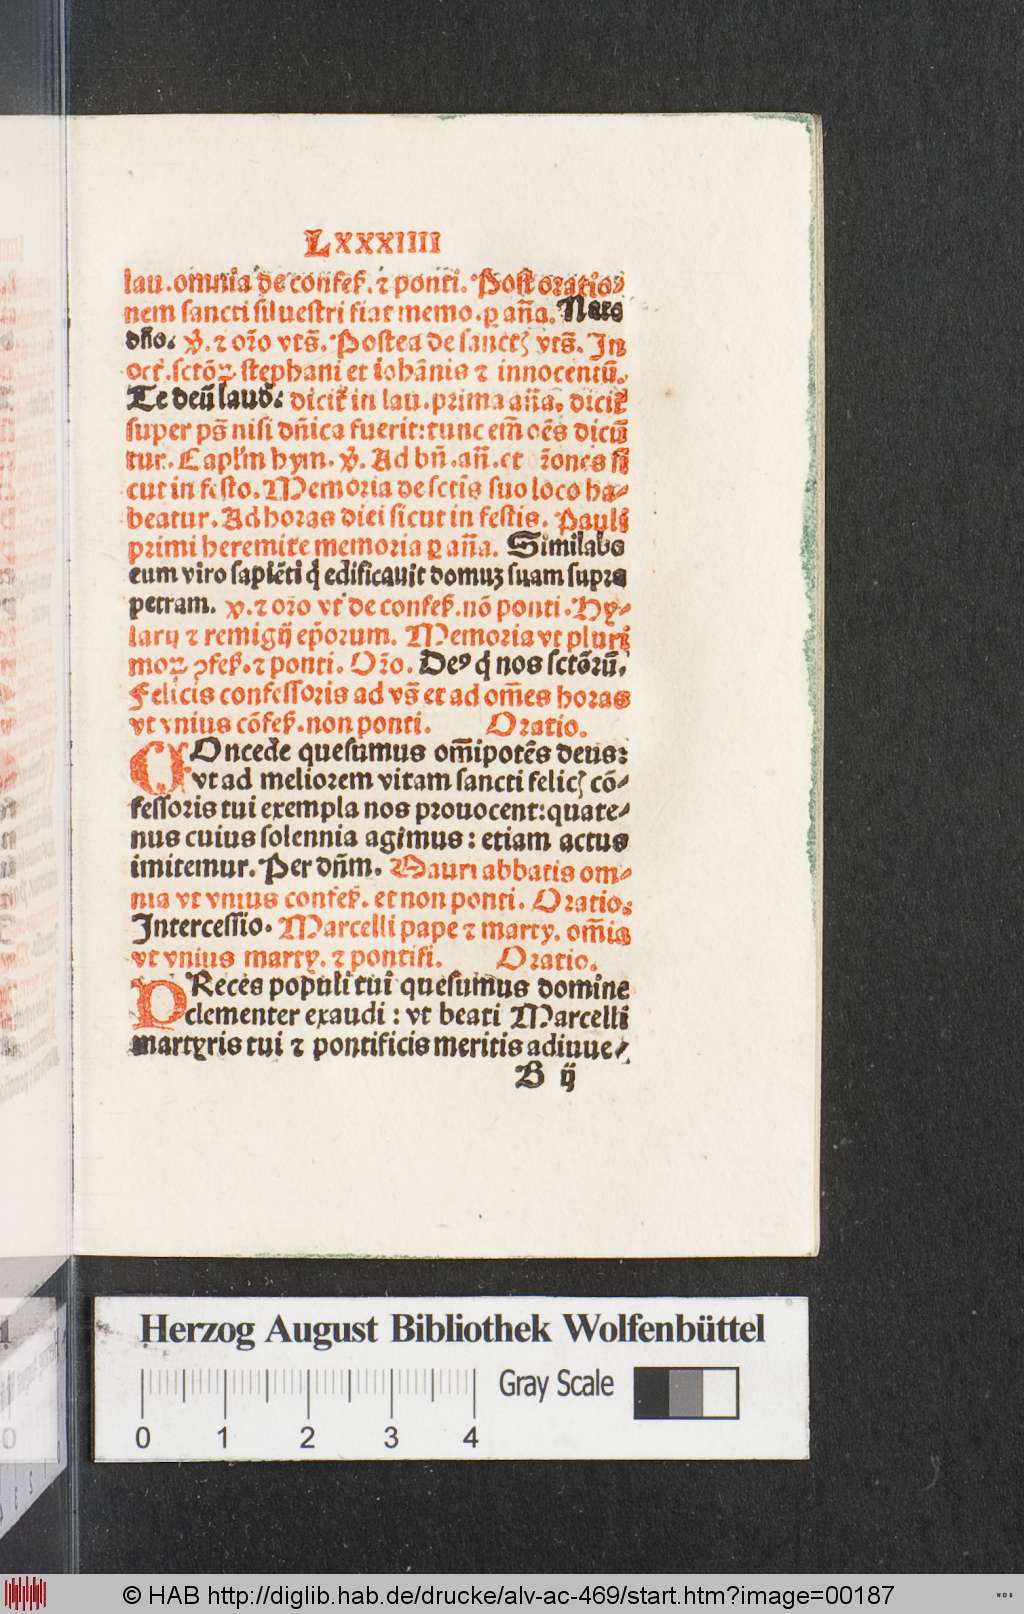 LXXXIIII
lau. omnia de confeſ. ⁊ ponti. Poſt oratio⸗
nem ſancti ſilueſtri fiat memo. ꝑ añā. Nato
dño. ꝟ. ⁊ orō vts̄. Poſtea de ſanctꝭ vts̄. In
oct̄. ſctōꝝ ſtephani et iohānis ⁊ innocentū.
Te deū laud. dicit̄ in lau. prima añā. dicit̄
ſuper ps̄ niſi dñica fuerit: tunc em̄ oēs dicū
tur. Capl'm hym. ꝟ. Ad bñ. añ. et r̄ones ſi
cut in feſto. Memoria de ſctīs ſuo loco ha⸗
beatur. Ad horas diei ſicut in feſtis. Pauli
primi heremite memoria ꝑ añā. Similabo
eum viro ſapiēti q̇ edificauit domuꝫ ſuam ſupra
petram. ꝟ. ⁊ orō vt de confeſ. nō ponti. Hy⸗
larij ⁊ remigij ep̄orum. Memoria vt pluri
moꝝ ꝯfeſ. ⁊ ponti. Orō. Deꝰ q̇ nos ſctōrū.
Felicis confeſſoris ad vs̄ et ad om̄es horas
vt vnius cōfeſ. non ponti. Oratio.
COncede queſumus om̄ipotēs deus:
vt ad meliorem vitam ſancti felicꝭ cō⸗
feſſoris tui exempla nos prouocent: quate⸗
nus cuius ſolennia agimus: etiam actus
imitemur. Per dñm. Mauri abbatis om⸗
nia vt vnius confeſ. et non ponti. Oratio.
Interceſſio. Marcelli pape ⁊ marty. om̄ia
vt vnius marty. ⁊ pontifi. Oratio.
PReces populi tui queſumus domine
clementer exaudi: vt beati Marcelli
martyris tui ⁊ pontificis meritis adiuue⸗
B ij
Herzog August Bibliothek Wolfenbüttel
Gray Scale
0 1 2 3 4
© HAB http://diglib.hab.de/drucke/alv-ac-469/start.htm?image=00187